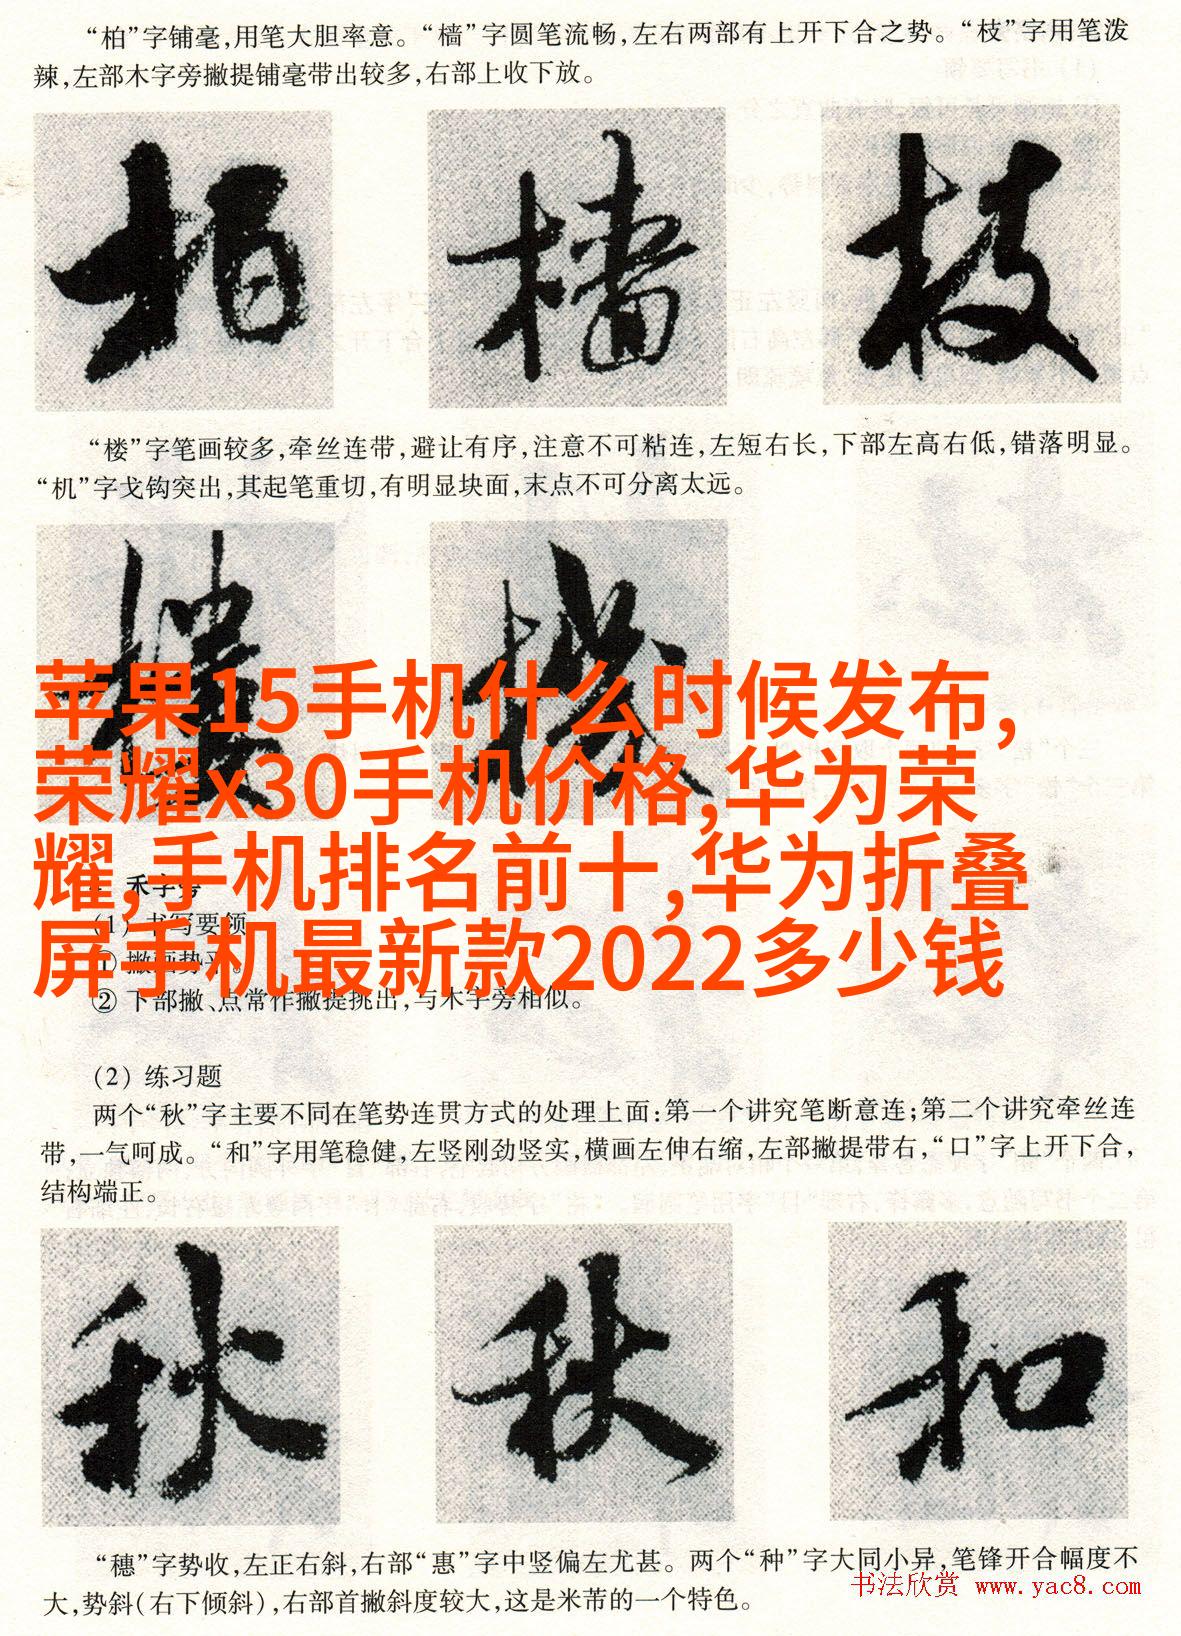 “柏”字铺毫,用笔大胆率意。“樯”字圆笔流畅,左右两部有上开下合之势。“枝”字用笔泼
辣,左部木字旁撇提铺毫带出较多,右部上收下放。
柏 樯 枝
“楼”字笔画较多,牵丝连带,避让有序,注意不可粘连,左短右长,下部左高右低,错落明显。
“机”字戈钩突出,其起笔重切,有明显块面,末点不可分离太远。
楼 機
苹果15手机什么时候发布,
荣耀x30手机价格,华为荣
耀,手机排名前十,华为折叠
屏手机最新款2022多少钱
禾字旁
(1) 书写要领
① 撇画势平。
② 下部撇、点常作撇提挑出,与木字旁相似。
(2) 练习题
两个“秋”字主要不同在笔势连贯方式的处理上面:第一个讲究笔断意连;第二个讲究牵丝连
带,一气呵成。“和”字用笔稳健,左竖刚劲竖实,横画左伸右缩,左部撇提带右,“口”字上开下合,
结构端正。
秋 秋 和
“穗”字势收,左正右斜,右部“惠”字中竖偏左尤甚。两个“种”字大同小异,笔锋开合幅度不
大,势斜(右下倾斜),右部首撇斜度较大,这是米芾的一个特色。
书法欣赏 www.yac8.com